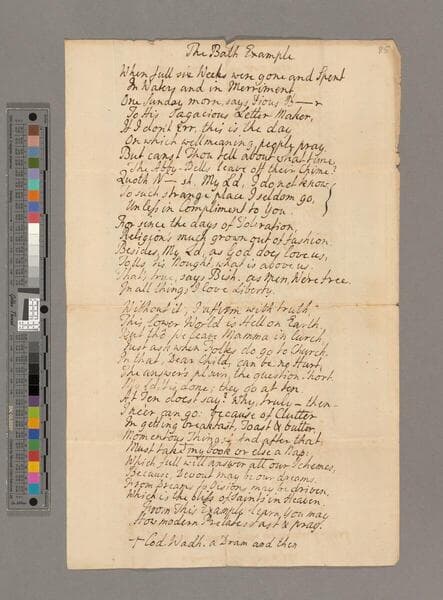 85
The Bath Example
When full six Weeks were gone and Spent
In Waters and in Merriment
One Sunday morn, says Pious W——r
To His Sagacious Letter Maker,
If I don't Err, this is the day,
On which wellmeaning people pray.
But canst Thou tell about what time,
The Abby-Bells leave off their Chime?
Quoth N—sh, My Ld, I do not know,
To such strange place I seldom go,
Unless in Compliment to You.
For since the days of Toleration,
Religion's much grown out of fashion.
Besides, My Ld, as God does love us,
Tells us nought what is above us.
That's true, says Bish. as Men, We're free
In all things I love Liberty.
Without it, I affirm with truth
This lower World is Hell on Earth.
But tho' we leave Mamma in Lurch,
Just ask when Folks do go to Church.
In that, Dear Child, can be no Hurt,
The answer's plain, the question short.
My Ld, 'tis done; they go at ten.
At Ten doest say? Why, truly — then —
I ne'er can go: because of Clutter
In getting breakfast, Toast & butter,
Momentous Things; And after that
Must take my book or else a Nap.
Which full well answer all our Schemes,
Because Devout may be our dreams.
From dreams to Visions may be driven,
Which is the bliss of Saints in Heaven.
From This Example learn, You may
How modern Prelates fast & pray.
+ Cod. Wadh. a Dram and then